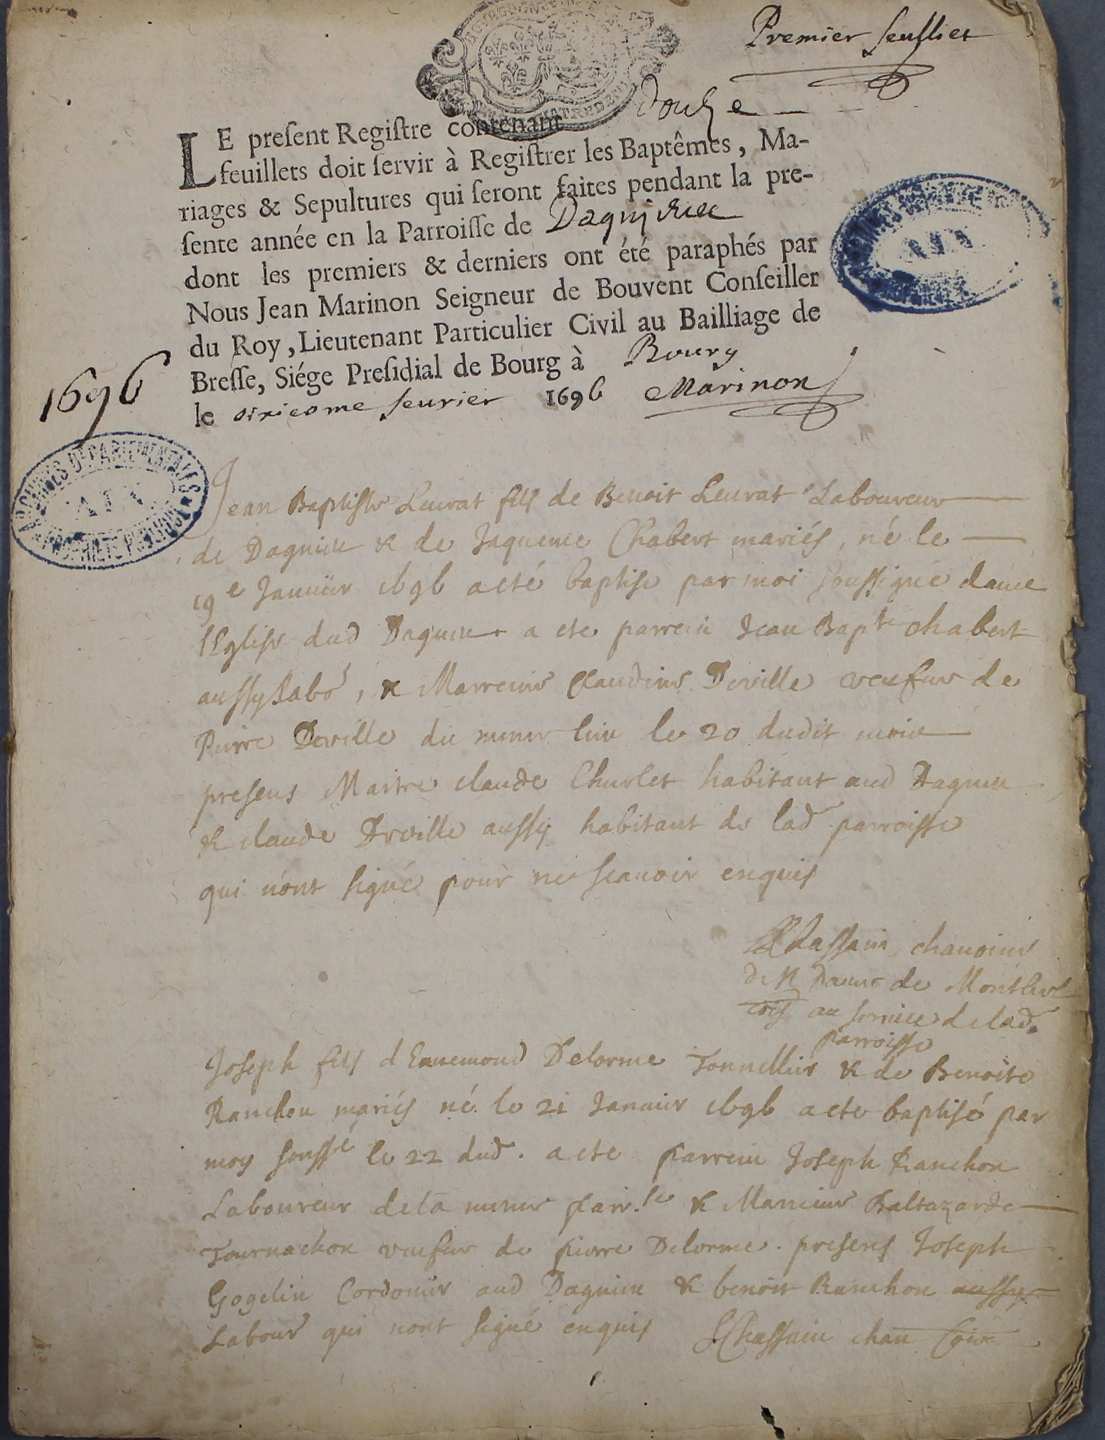 Premier feuillet
LE present Registre contenant douze
feuillets doit servir à Registrer les Baptêmes, Ma-
riages & Sepultures qui seront faites pendant la pre-
sente année en la Parroisse de Dagnieu
dont les premiers & derniers ont été paraphés par
Nous Jean Marinon Seigneur de Bouvent Conseiller
du Roy, Lieutenant Particulier Civil au Bailliage de
Bresse, Siége Presidial de Bourg à Bourg
le sixieme feurier 1696 Marinon
1696
ARCHIVES DEPARTEMENTALES
AIN
Jean Baptiste Leurat fils de Benoit Leurat Laboureur
de Dagnieu & de Jaqueme Chabert mariés, né le
19e Januier 1696 a eté baptise par moi soussigné dans
l'Eglise dud Dagnieu a ete parrein Jean Bapte chabert
aussy Labor, & Marreine Claudine Deville veufue de
Pierre Deville du meme lieu le 20 dudit mois
presens Maitre claude Churlet habitant aud Dagnieu
& claude Deville aussy habitant de lad parroisse
qui n'ont signé pour ne scauoir enquis
Chassain chanoine
de N Dame de Montluel
au seruice de lad.
parroisse
Joseph fils d'Ennemond Delorme Tonnellier & de Benoite
Ranchon mariés né le 21 Januier 1696 a ete baptisé par
moy soussé le 22 dud. a ete parrein Joseph Ranchon
Laboureur de la meme parr.se & Marreine Baltazarde
Tournachon veufue de pierre Delorme. presens Joseph
Gogelin Cordonier aud Dagnieu & benoit Ranchon aussy
Labour qui n'ont signé enquis Chassain chan